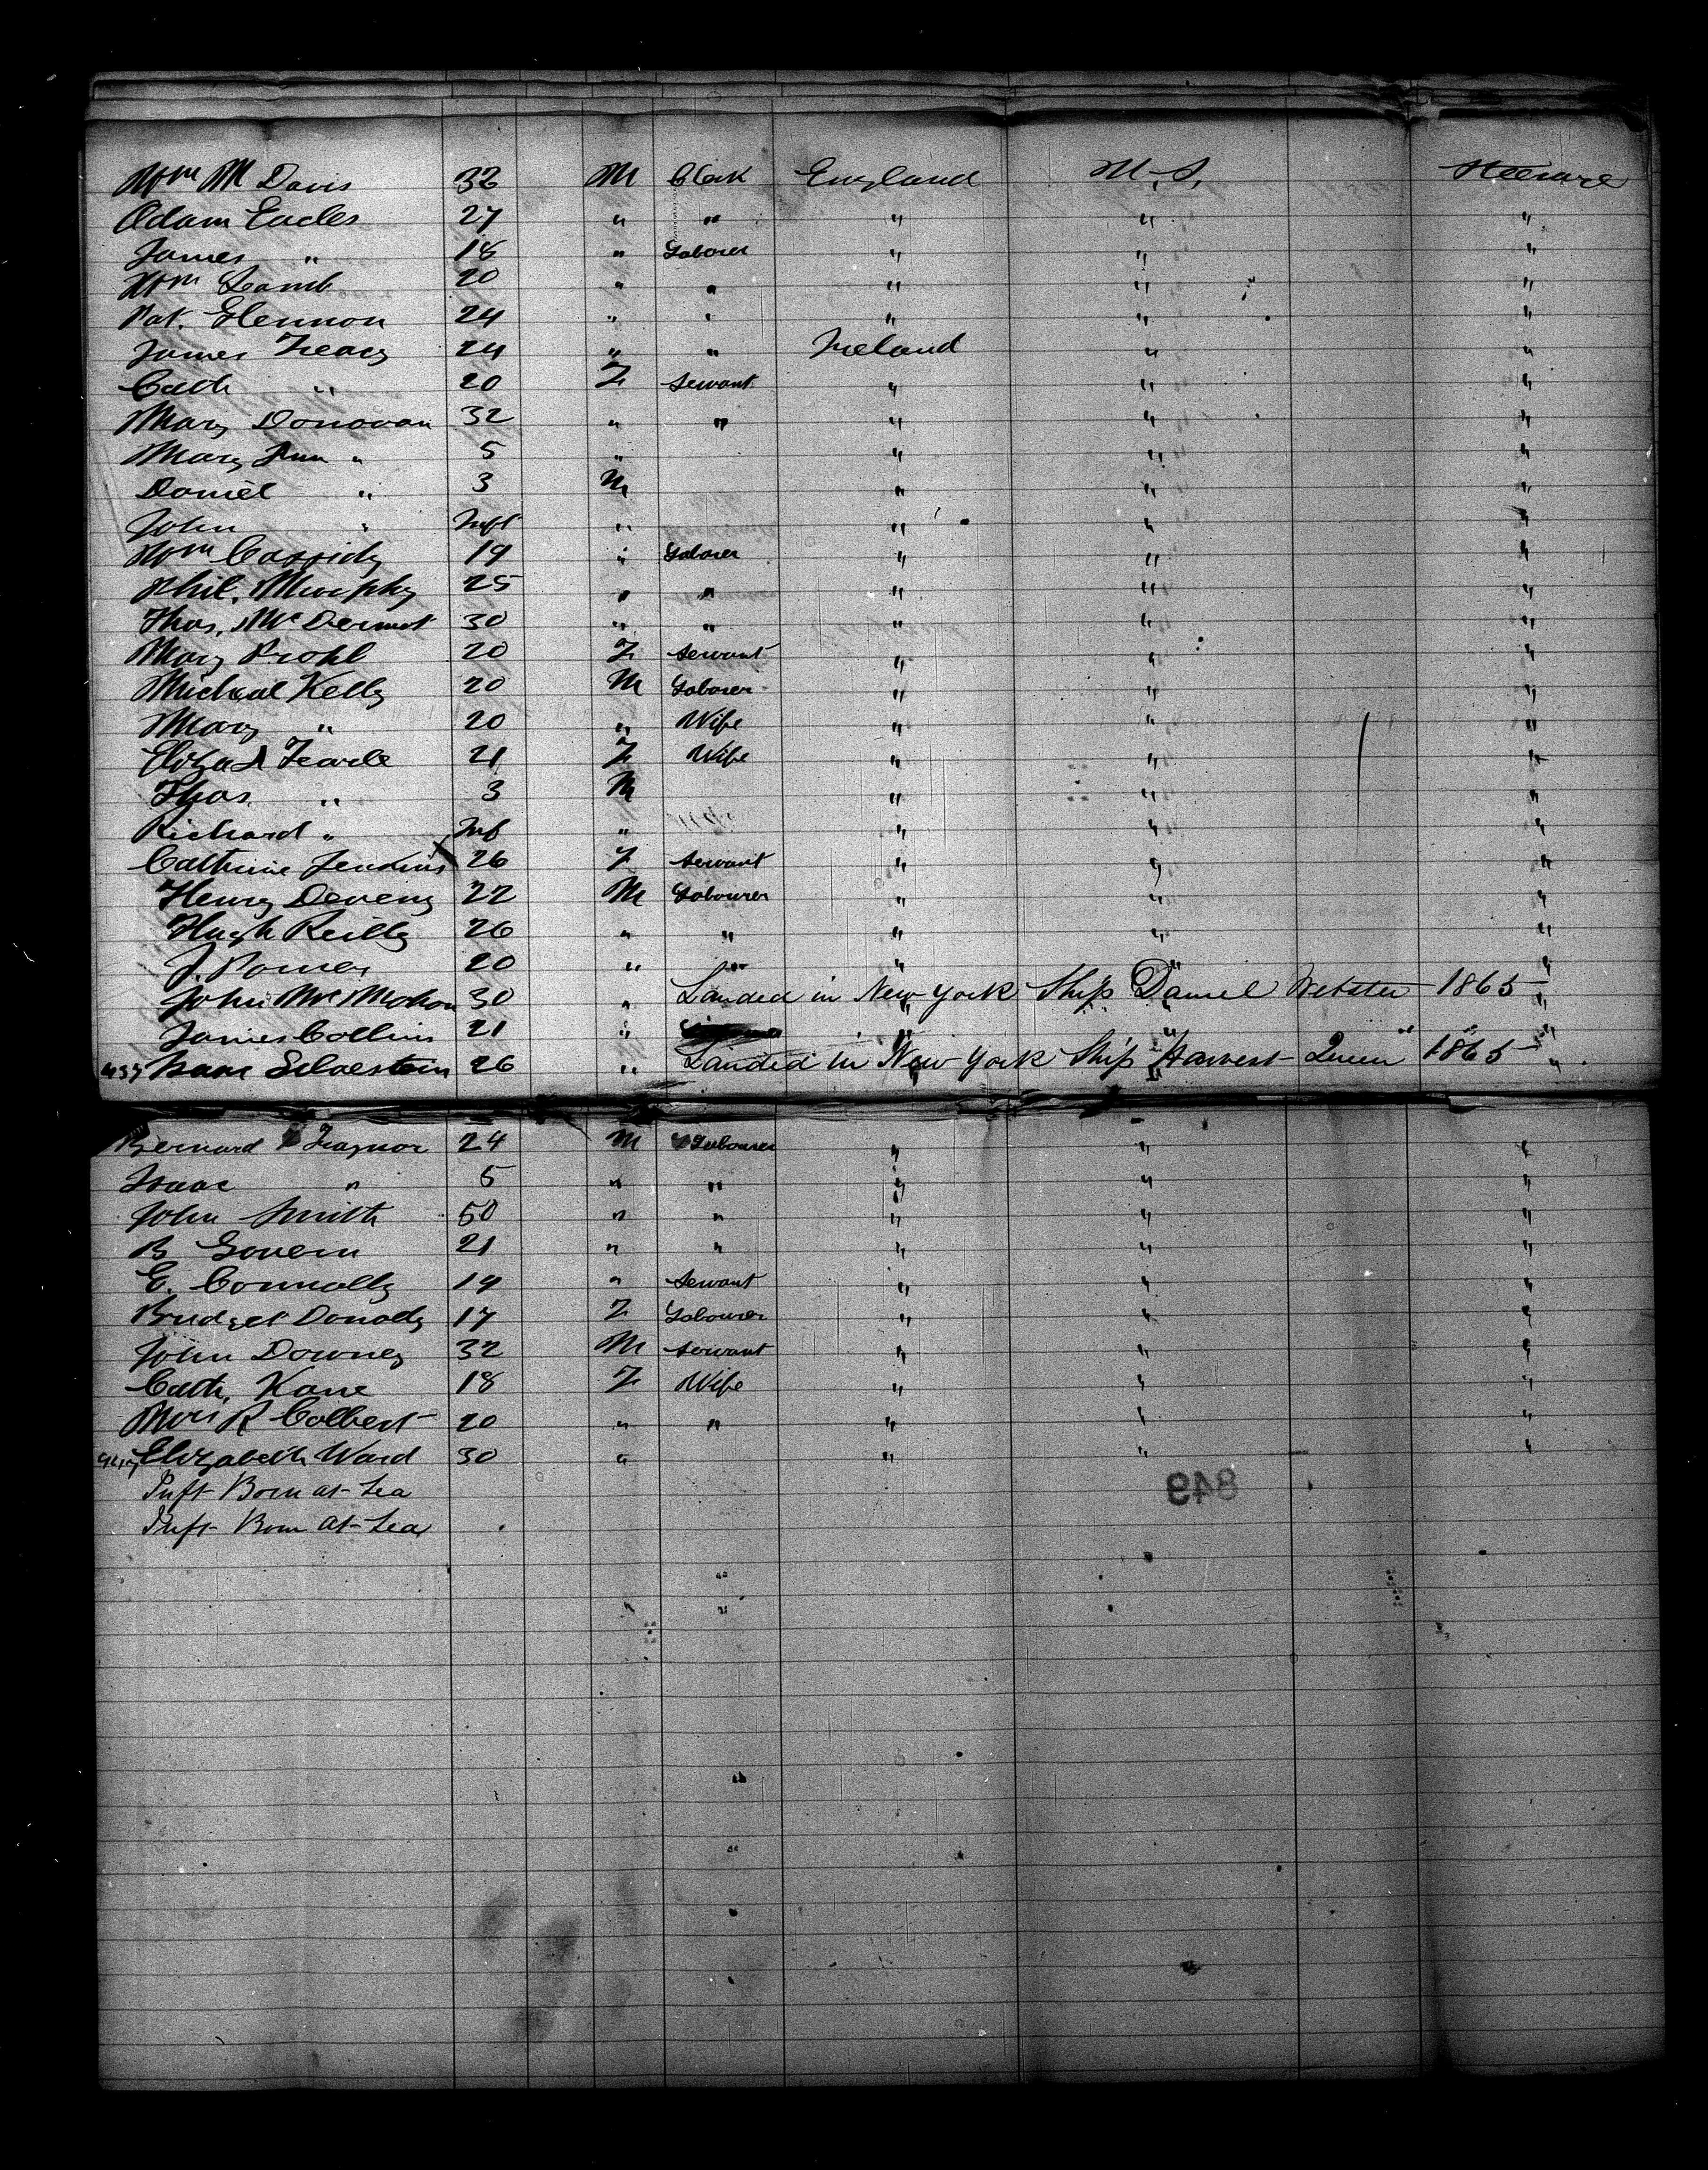 Wm M Davis 32 M Clerk England U.S. Steerage
Adam Eacles 27 " " " " "
James " 18 " Laborer " " "
Wm Lamb 20 " " " " "
Pat. Glennon 24 " " " " "
James Treacy 24 " " Ireland " "
Cath " 20 F Servant " " "
Mary Donovan 32 " " " " "
Mary Ann " 5 " " " "
Daniel " 3 M " " "
John " Inft " " " "
Wm Cassidy 19 " Laborer " " "
Phil. Murphy 25 " " " " "
Thos. McDermot 30 " " " " "
Mary 20 F Servant " " "
Micheal Kelly 20 M Laborer " " "
Mary " 20 " Wife " " "
Eliza 21 F Wife " " "
Thos " 3 M " " "
Richard " Inf " " " "
Cathrine Jenkins 26 F Servant " " "
Henry Deveny 22 M Labourer " " "
Hugh Reilly 26 " " " " "
J. 20 " " " " "
John McMahon 30 " Landed in New York Ship Daniel Webster 1865 "
James Collins 21 " " " "
Isaac 26 " Landed in New York Ship "Harvest Queen" 1865 "
Bernard 24 M Labourer " " "
Isaac " 5 " " " " "
John Smith 50 " " " " "
B Govern 21 " " " " "
E. Connolly 19 " Servant " " "
Bridget 17 F Labourer " " "
John Downey 32 M Servant " " "
Cath. Kane 18 F Wife " " "
Mrs R Colbert 20 " " " " "
Elizabeth Ward 30 " " " "
Inft Born at Sea
Inft Born at Sea
849